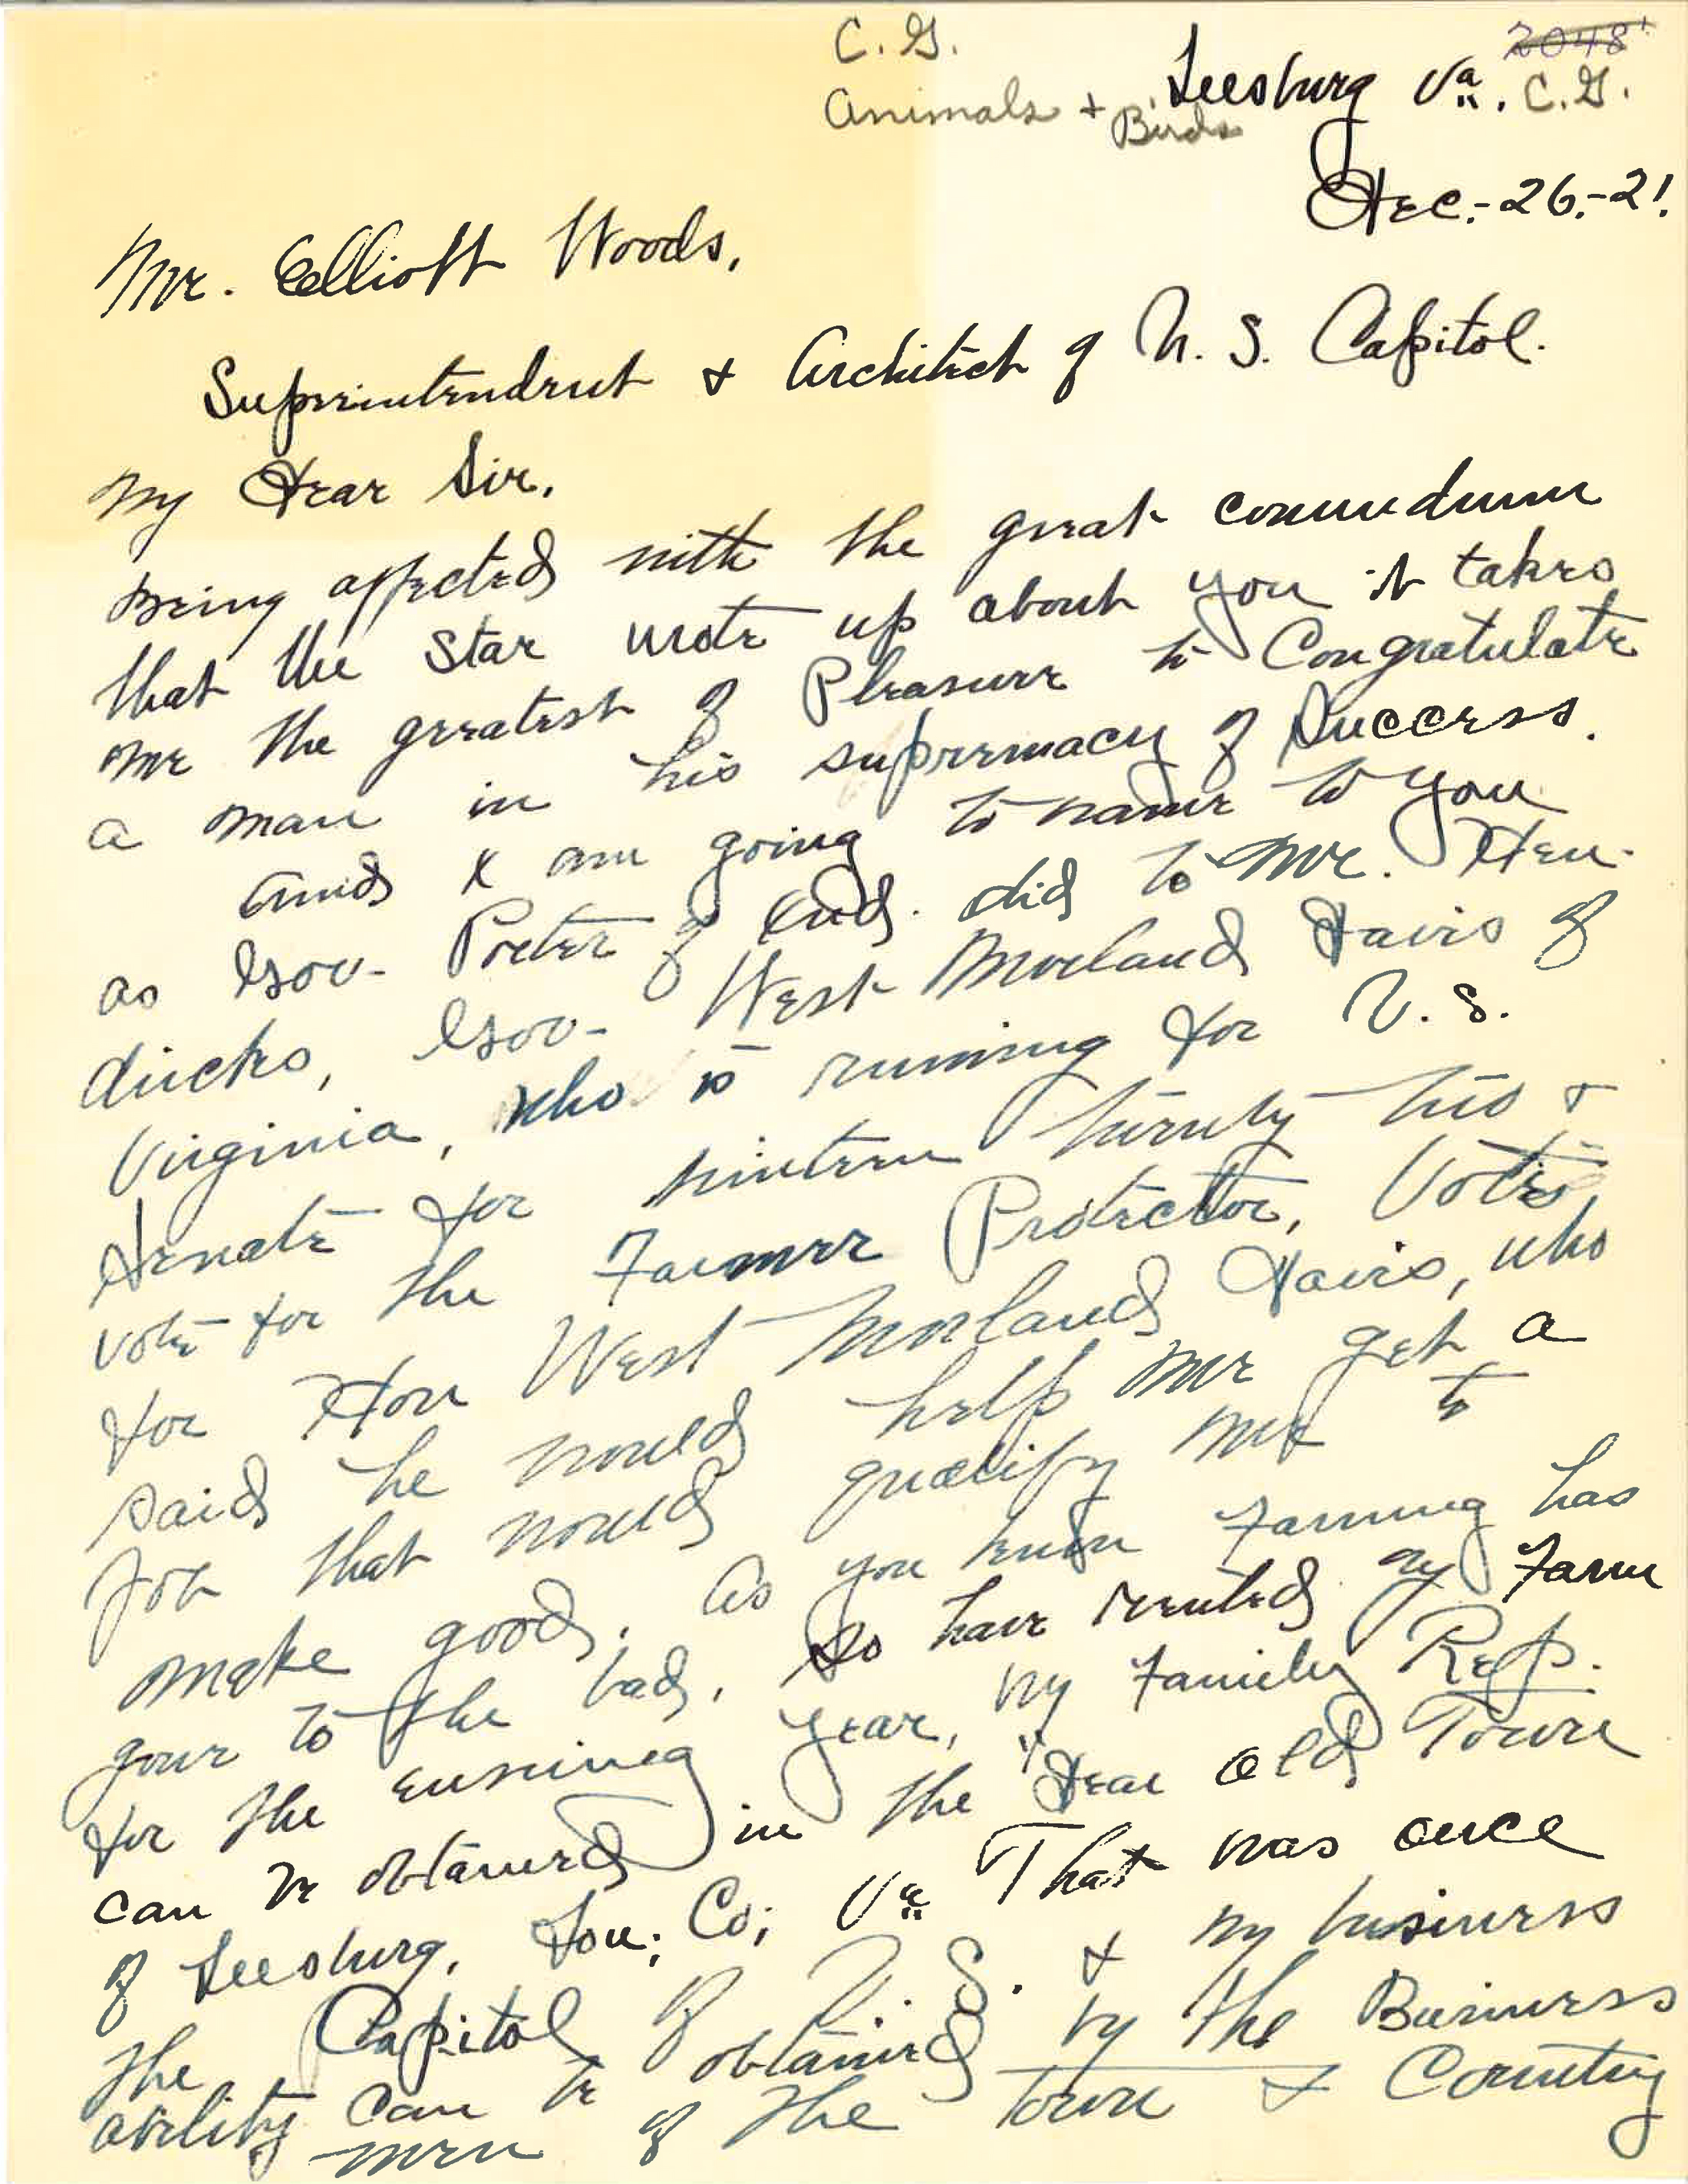 C. G.
Animals + Birds
2048
C. G.
Leesburg Va.
Dec.-26.-21.
Mr. Elliott Woods,
Superintendent & Architect of U. S. Capitol.
My Dear Sir,
Being affected with the great conundrum
that the Star wrote up about you it takes
me the greatest of Pleasure to Congratulate
a man in his supremacy of Success.
and I am going to name to you
as Gov- Porter of Ind. did to Mr. Hen-
dricks, Gov- West Morland Davis of
Virginia, who is running for U. S.
Senate for ninteen twenty two &
vote for the Farmer Protector, Votes,
for Hon West Morland Davis, who
said he would help me get a
job that would qualify me to
make good. As you know Farming has
gone to the bad, so have rented my Farm
for the ensuing year, my Family Rep.
can be obtained in the "Dear old Towne
of Leesburg. Lou; Co; Va. That was once
the Capitol of U. S. & my business
ability can be obtained by the Business
men of the town & Country